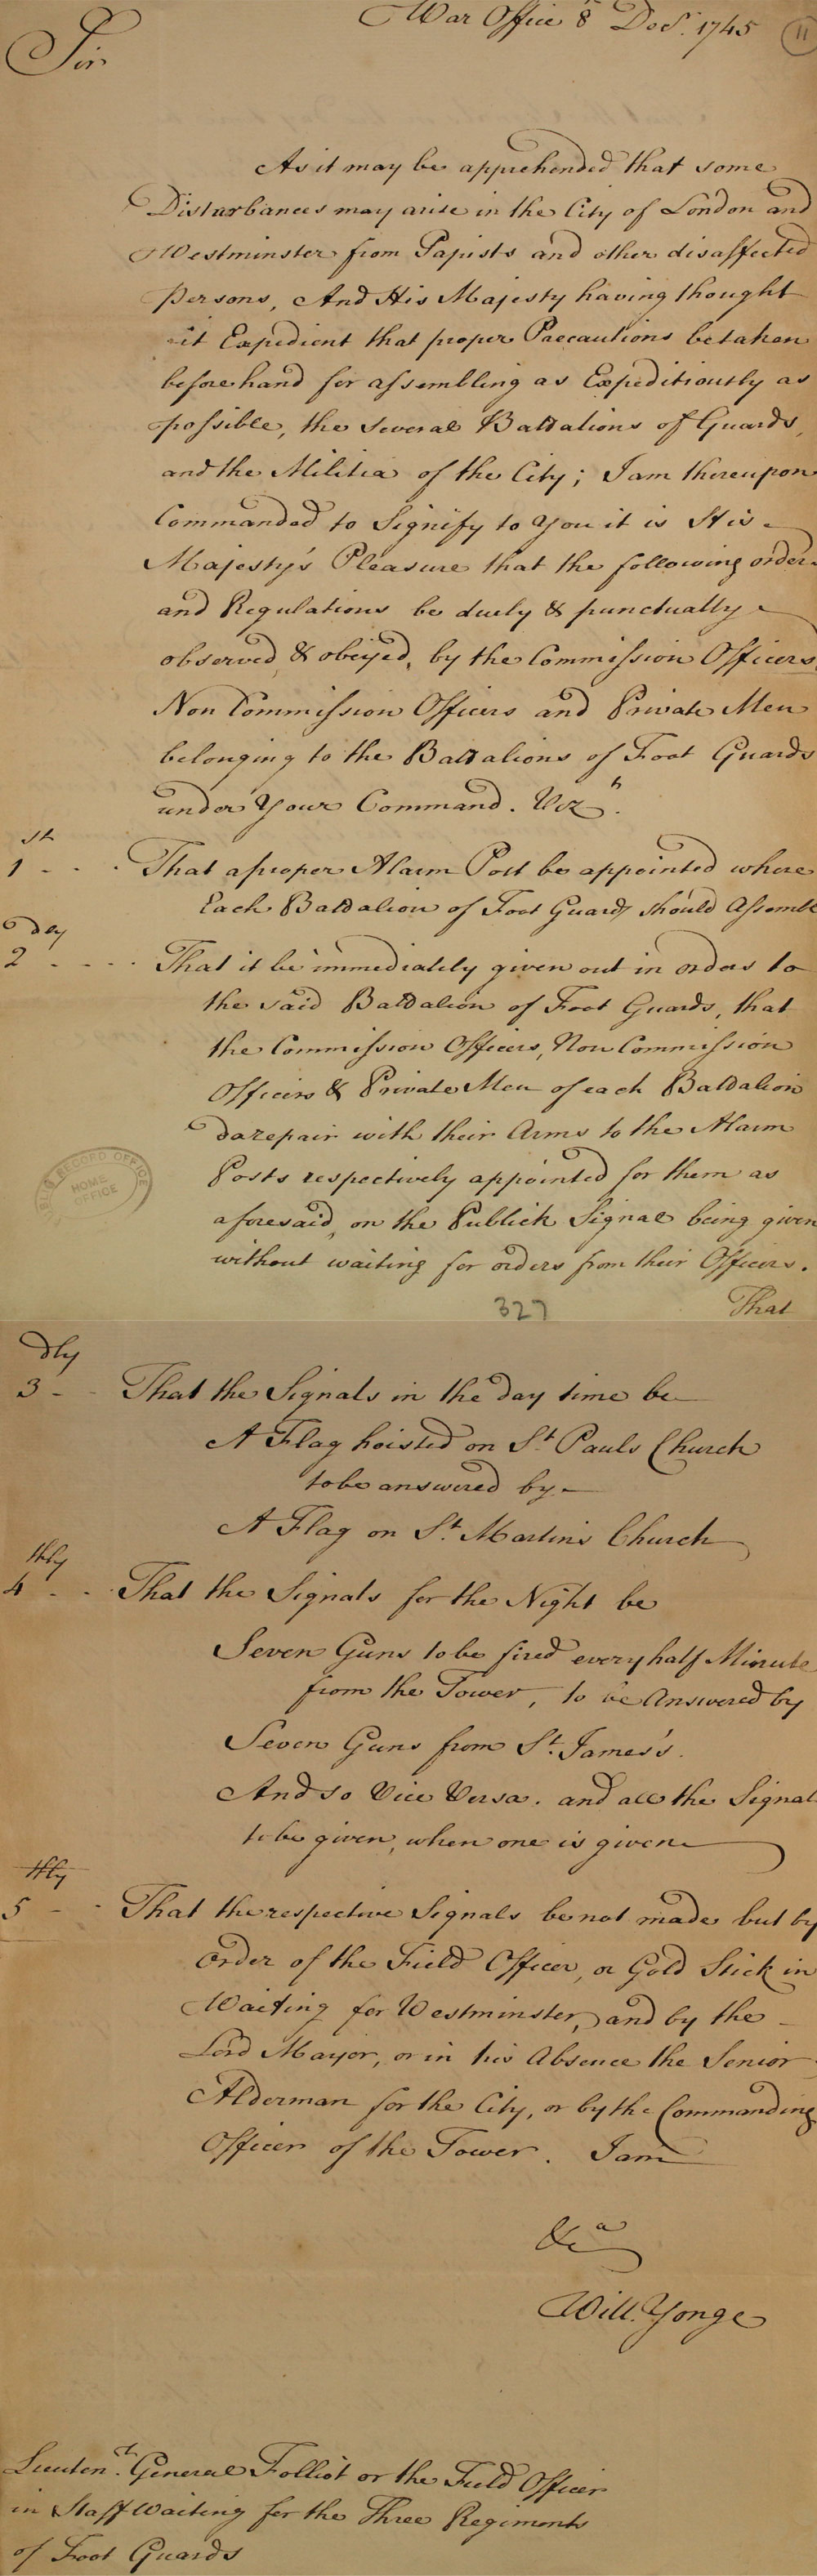 War Office 8 Decr. 1745
11
Sir
As it may be apprehended that some
Disturbances may arise in the City of London and
Westminster from Papists and other disaffected
Persons, And His Majesty having thought
it Expedient that proper Precautions be taken
beforehand for assembling as Expeditiously as
possible, the several Battalions of Guards,
and the Militia of the City; I am thereupon
Commanded to Signify to You it is His
Majesty's Pleasure that the following orders
and Regulations be duely & punctually
observed, & obeyed, by the Commission Officers
Non Commission Officers and Private Men
belonging to the Battalions of Foot Guards
under Your Command. Vizt.
1st - - . That a proper Alarm Post be appointed where
Each Battalion of Foot Guards should Assemble
2dly - - - - That it be immediately given out in orders to
the said Battalion of Foot Guards, that
the Commission Officers, Non Commission
Officers & Private Men of each Battalion
do repair with their Arms to the Alarm
Posts respectively appointed for them as
aforesaid, on the Publick Signal being given
without waiting for orders from their Officers.
PUBLIC RECORD OFFICE
HOME
OFFICE
327
That
3dly - - That the Signals in the day time be
A Flag hoisted on St. Pauls Church
to be answered by
A Flag on St. Martin's Church
4thly - - That the Signals for the Night be
Seven Guns to be fired every half Minute
from the Tower, to be Answered by
Seven Guns from St. James's.
And so Vice Versa. and all the Signal
to be given, when one is given
5thly - - That the respective Signals be not made but by
Order of the Field Officer, or Gold Stick in
Waiting for Westminster, and by the
Lord Mayor, or in his Absence the Senior
Alderman for the City, or by the Commanding
Officer of the Tower. I am
&ca
Will. Yonge
Lieutent. General Folliot or the Field Officer
in Staff Waiting for the Three Regiments
of Foot Guards